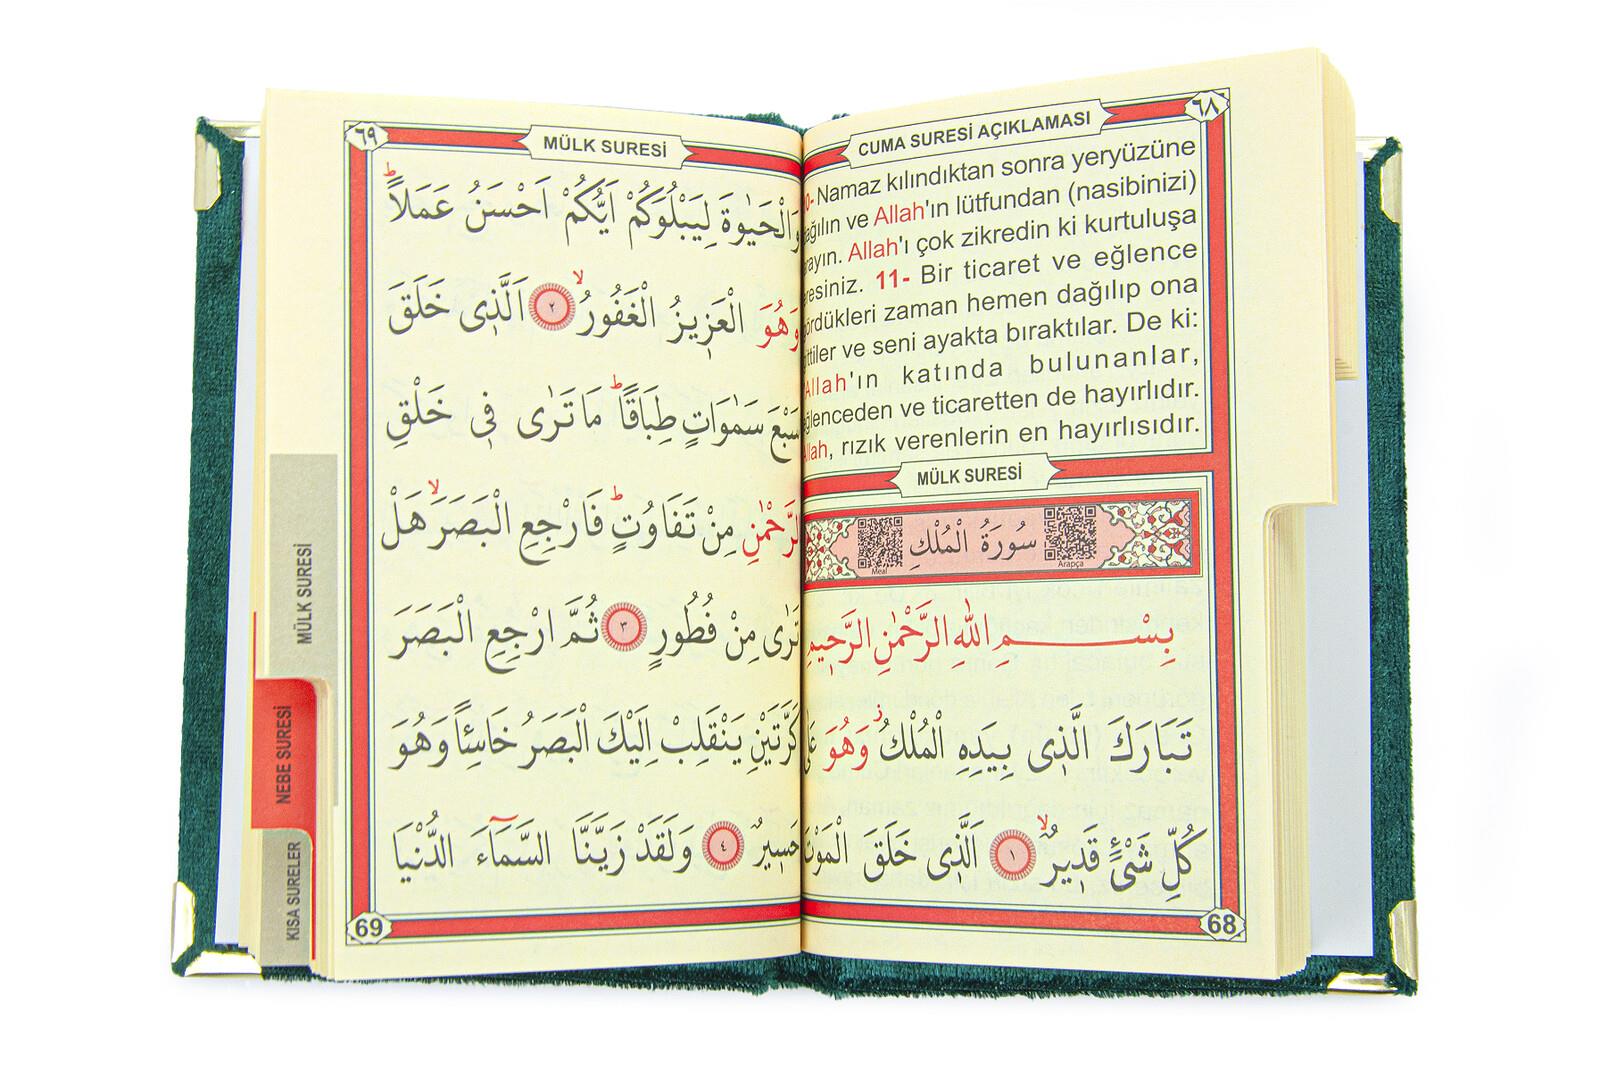 ٦٨
CUMA SURESİ AÇIKLAMASI
Namaz kılındıktan sonra yeryüzüne
ve Allah'ın lütfundan (nasibinizi)
Allah'ı çok zikredin ki kurtuluşa
11- Bir ticaret ve eğlence
zaman hemen dağılıp ona
ve seni ayakta bıraktılar. De ki:
Allah'ın katında bulunanlar,
ve ticaretten de hayırlıdır.
rızık verenlerin en hayırlısıdır.
MÜLK SURESİ
سُورَةُ الْمُلْكِ
Arapça
Meal
بِسْمِ اللّٰهِ الرَّحْمٰنِ الرَّحٖيمِ
تَبَارَكَ الَّذٖى بِيَدِهِ الْمُلْكُ وَهُوَ عَلٰى
كُلِّ شَىْءٍ قَدٖيرٌ ١ اَلَّذٖى خَلَقَ الْمَوْتَ
68
٦٩
MÜLK SURESİ
وَالْحَيٰوةَ لِيَبْلُوَكُمْ اَيُّكُمْ اَحْسَنُ عَمَلاً
وَهُوَ الْعَزٖيزُ الْغَفُورُ ٢ اَلَّذٖى خَلَقَ
سَبْعَ سَمٰوَاتٍ طِبَاقًا مَا تَرٰى فٖى خَلْقِ
الرَّحْمٰنِ مِنْ تَفَاوُتٍ فَارْجِعِ الْبَصَرَ هَلْ
تَرٰى مِنْ فُطُورٍ ٣ ثُمَّ ارْجِعِ الْبَصَرَ
كَرَّتَيْنِ يَنْقَلِبْ اِلَيْكَ الْبَصَرُ خَاسِئًا وَهُوَ
حَسٖيرٌ ٤ وَلَقَدْ زَيَّنَّا السَّمَاءَ الدُّنْيَا
69
MÜLK SURESİ
NEBE SURESİ
KISA SURELER